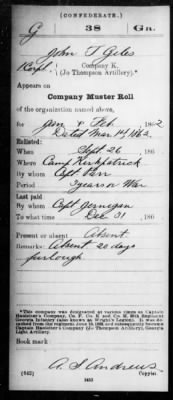 (CONFEDERATE.)
G 38 Ga.
John T Giles
Corpl., Company K.
(Jo Thompson Artillery).*
Appears on
Company Muster Roll
of the organization named above,
for Jan & Feb, 1862
Dated Mar 14, 1862.
Enlisted:
When Sept 26, 186
Where Camp Kirkpatrick
By whom Capt Parr
Period 3 years or War
Last paid:
By whom Capt Jernigan
To what time Dec 31, 186
Present or absent Absent
Remarks: Absent 20 days
furlough
*This company was designated at various times as Captain
Hanleiter's Company, Co. F, Co. K and Co. M, 38th Regiment
Georgia Infantry (also known as Wright's Legion). It was detached
from the regiment
Captain Hanleiter's Company (Jo Thompson Artillery), Georgia
Light Artillery.
Book mark
(642) A. S. Andrews
Copyist.